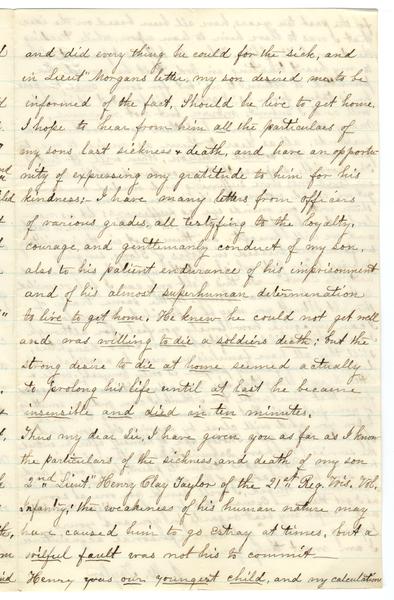 and did every thing he could for the sick, and
in Lieut Morgans letter, my son desired me to be
informed of the fact. Should he live to get home.
I hope to hear from him all the particulars of
my sons last sickness & death, and have an opportu-
nity of expressing my gratitude to him for his
kindness;– I have many letters from officers
of various grades, all testifying to the loyalty,
courage and gentlemanly conduct of my son,
also to his patient endurance of his imprisonment
and of his almost superhuman determenation
to live to get home. He knew he could not get well
and was willing to die a soldiers death; but the
strong desire to die at home seemed actually
to prolong his life until at last he became
insensible and died in ten minutes.
Thus my dear Sir, I have given you as far as I know
the particulars of the sickness and death of my son
2nd Lieut Henry Clay Taylor of the 21st Reg. Wis. Vol.
Infantry; the weakeness of his human nature may
have caused him to go estray at times, but a
wilful fault was not his to commit
Henry was our youngest child, and my calculation